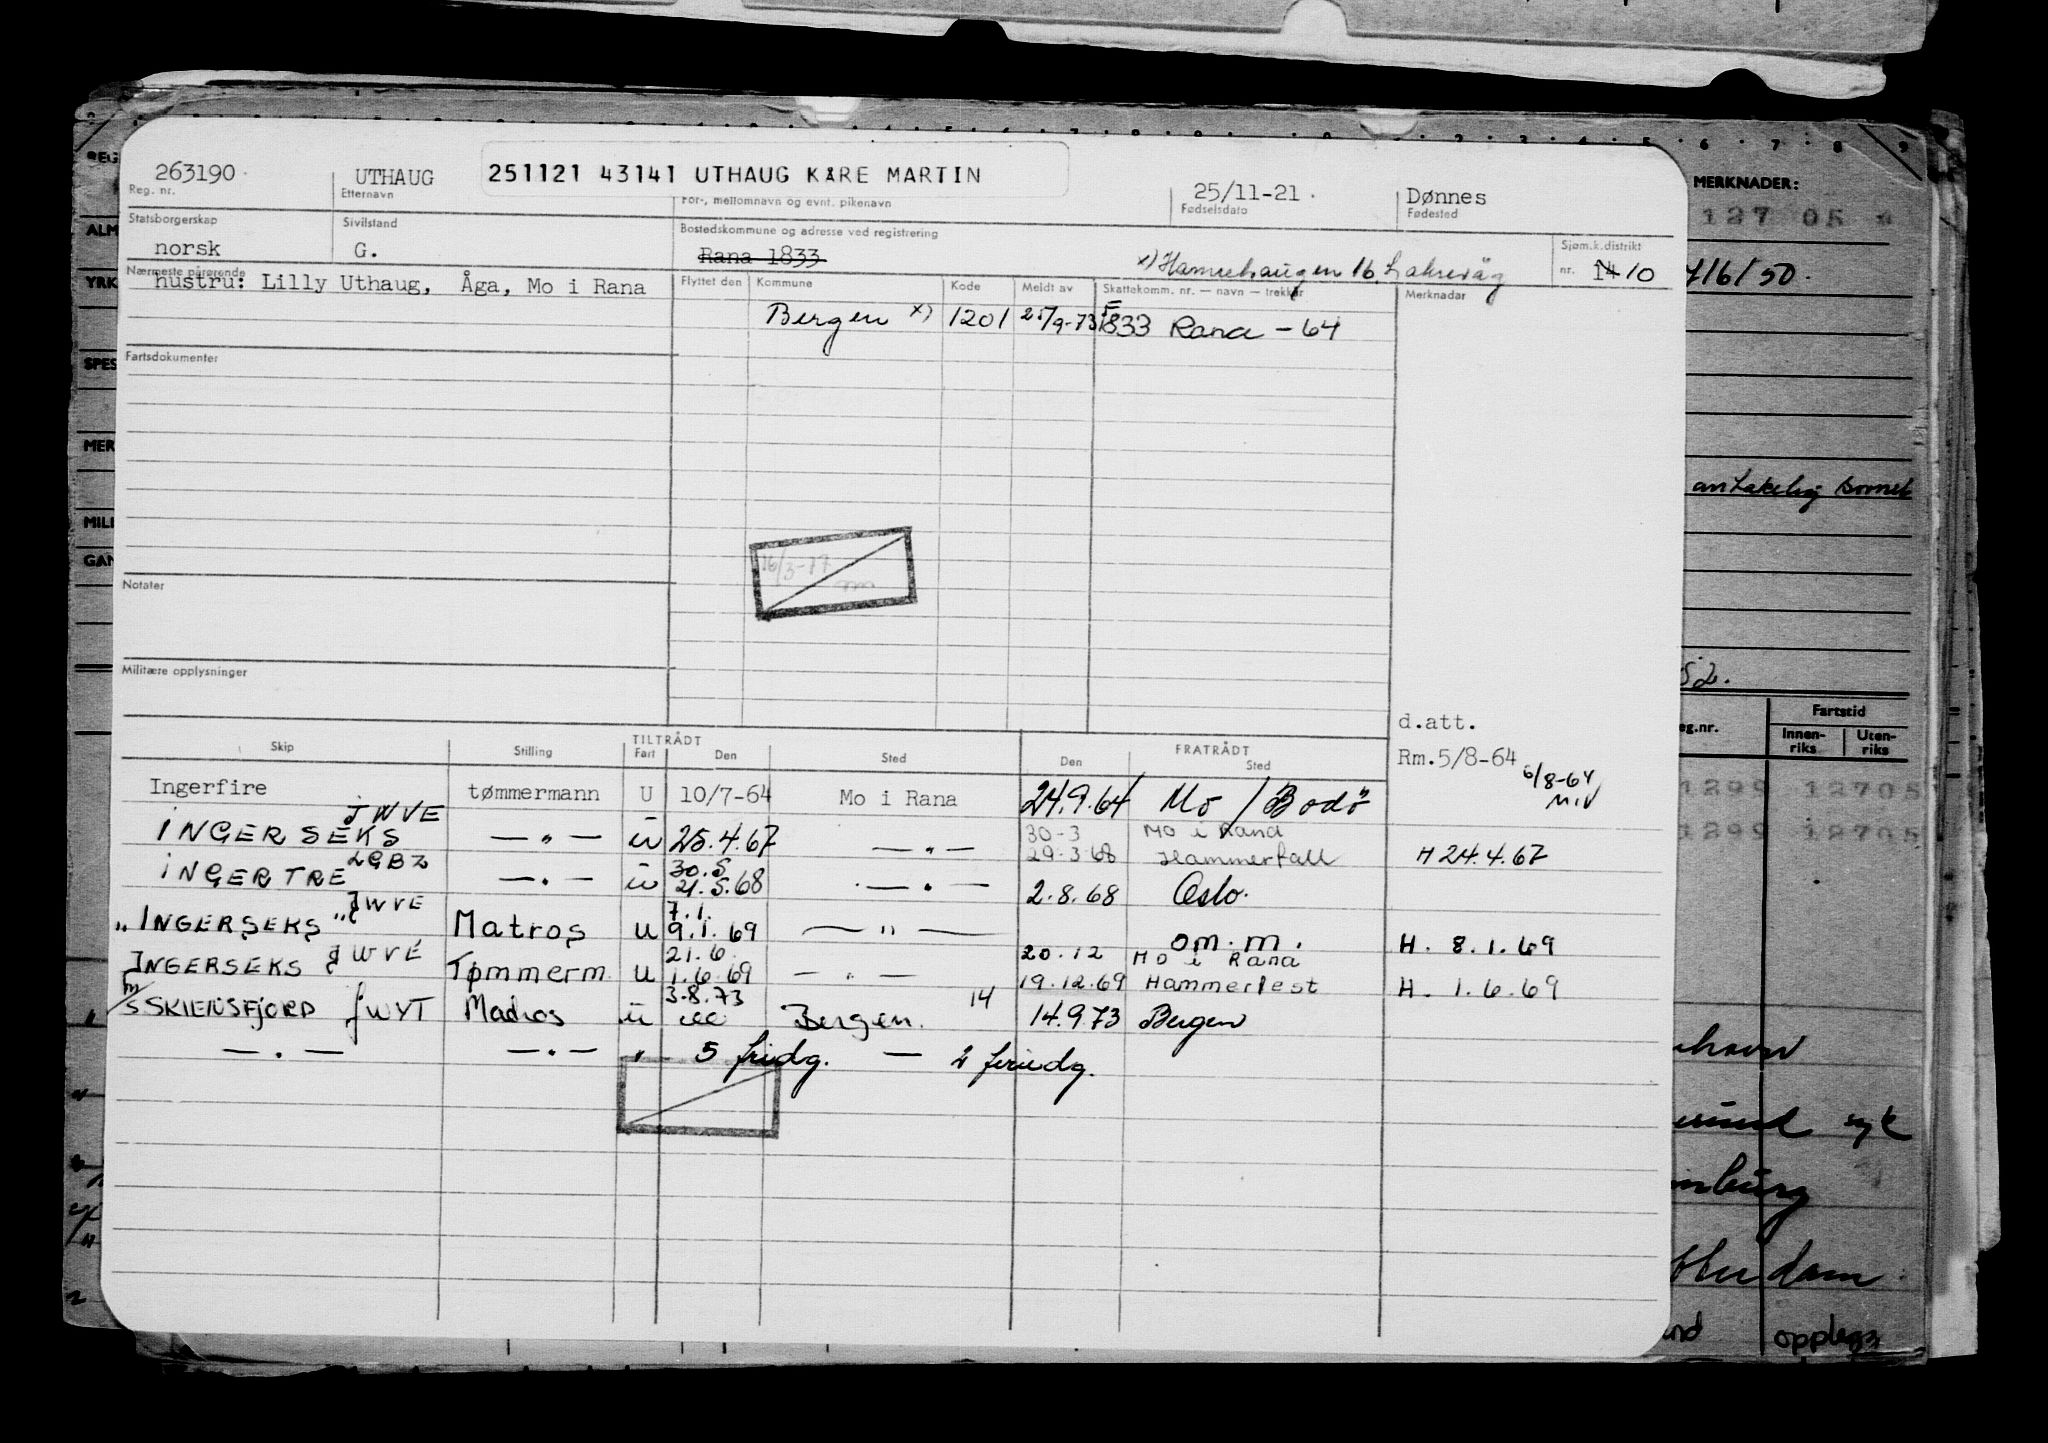 263190.
UTHAUG
251121 43141 UTHAUG KÅRE MARTIN
25/11-21.
Dønnes
Reg. nr.
Etternavn
For-, mellomnavn og evnt. pikenavn
Fødselsdato
Fødested
MERKNADER:
127 05
Statsborgerskap
Sivilstand
Bostedskommune og adresse ved registrering
Sjøm.k.distrikt
norsk
G.
Rana 1833
nr. 14 10
716/50.
Nærmeste pårørende
hustru: Lilly Uthaug, Åga, Mo i Rana
Flyttet den
Kommune
Kode
Meldt av
Skattekomm. nr. — navn — trekkår
Merknadar
Bergen x) 1201
1833 Rana - 64
Fartsdokumenter
16/3-77
Notater
Militære opplysninger
52.
Fartstid
Innen-riks
Uten-riks
d.att.
Skip
Stilling
TILTRÅDT
Fart
Den
Sted
FRATRÅDT
Den
Sted
Rm.5/8-64
6/8-64
Ingerfire tømmermann U 10/7-64 Mo i Rana 24.9.64 Mo / Bodø
1299 12705
JWVE 30-3 Mo i Rana
INGER SEKS — " — u 25.4.67 — " — 29.3.68 Hammerfall H 24.4.67
1299 12705
LGBZ 30.5
INGER TRE — " — u 21.5.68 — " — 2.8.68 Oslo.
JWVE 7.1.
"INGERSEKS" Matros u 9.1.69 — " — om.m. H. 8.1.69
JWVE 21.6. 20.12 Mo i Rana
INGERSEKS Tømmerm. u 1.6.69 — " — 19.12.69 Hammerfest H. 1.6.69
3.8.73 14
m/s SKIENSFJORD JWYT Matros u Bergen. 14.9.73 Bergen
— " — — " — " 5 fridg. — 2 feriedg.
syk